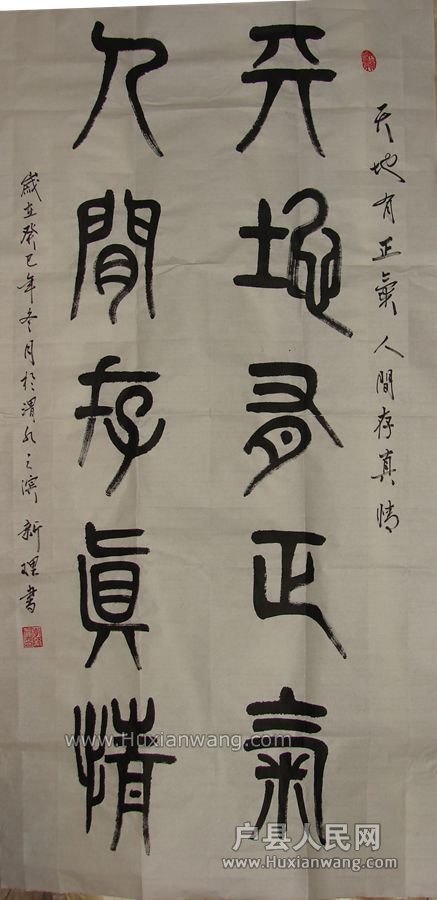 天地有正氣人間存真情
天地有正氣
人間存眞情
歲在癸巳年冬月於渭水之濱 新理書
www.Huxianwang.com
户县人民网
www.Huxianwang.com